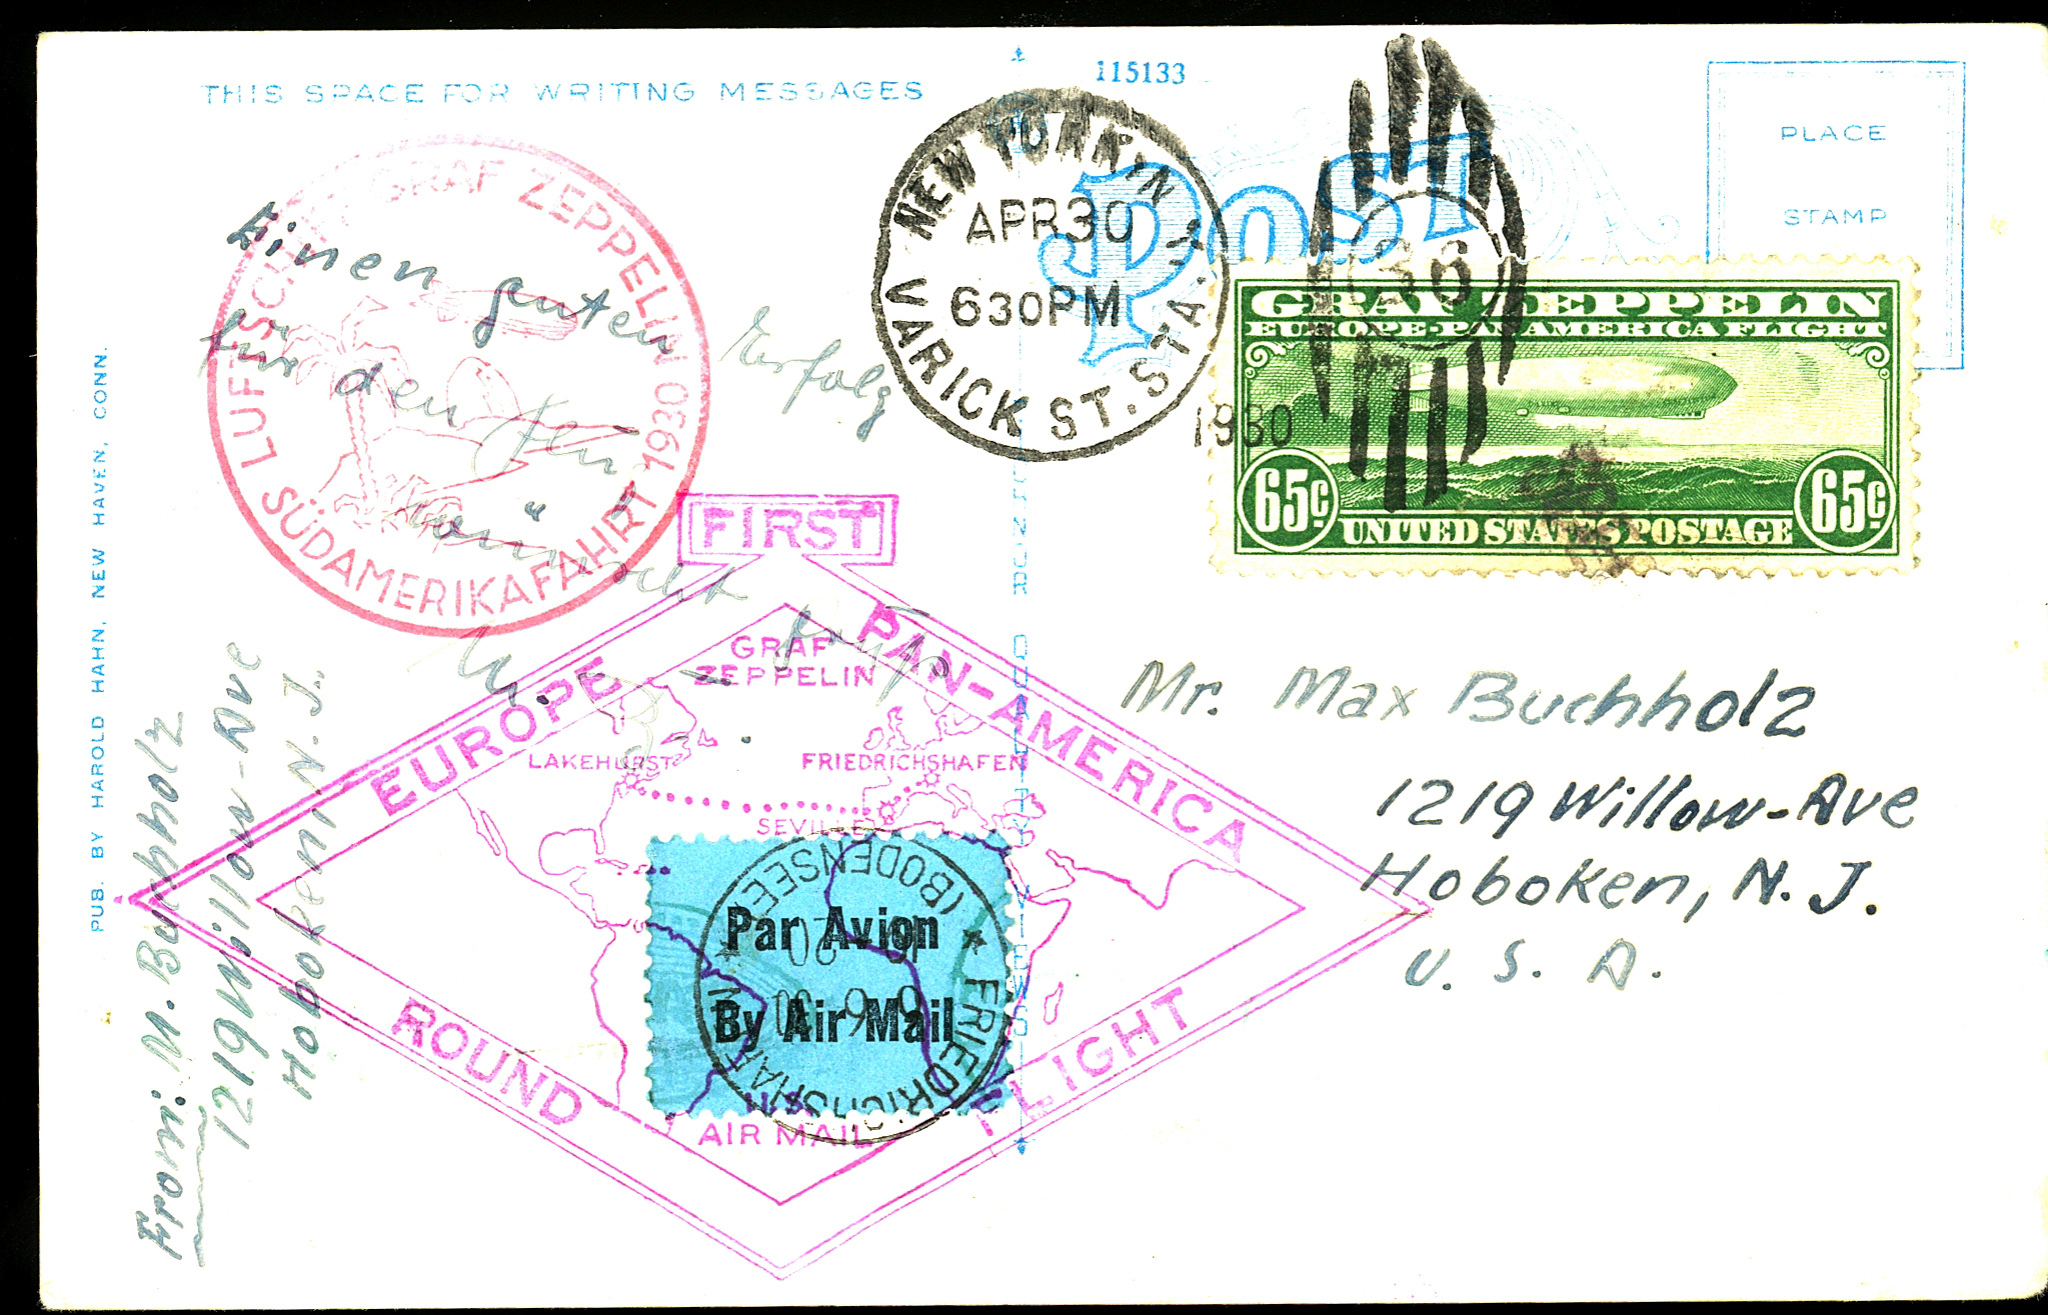 THIS SPACE FOR WRITING MESSAGES
115133
POST
PLACE
STAMP
PUB. BY HAROLD HAHN, NEW HAVEN, CONN.
LUFTSCHIFF GRAF ZEPPELIN 1930
SÜDAMERIKAFAHRT
Einen guten Erfolg
für den Flug
wünscht
M. B.
NEW YORK, N.Y.
APR 30
630PM
VARICK ST. STA.
1930
36
GRAF ZEPPELIN
EUROPE-PAN AMERICA FLIGHT
65¢ 65¢
UNITED STATES POSTAGE
FIRST
EUROPE PAN-AMERICA
ROUND FLIGHT
GRAF
ZEPPELIN
LAKEHURST
FRIEDRICHSHAFEN
SEVILLE
Par Avion
By Air Mail
FRIEDRICHSHAFEN
(BODENSEE)
U.S.
AIR MAIL
Mr. Max Buchholz
1219 Willow-Ave
Hoboken, N. J.
U. S. A.
From: M. Buchholz
1219 Willow-Ave
Hoboken N. J.